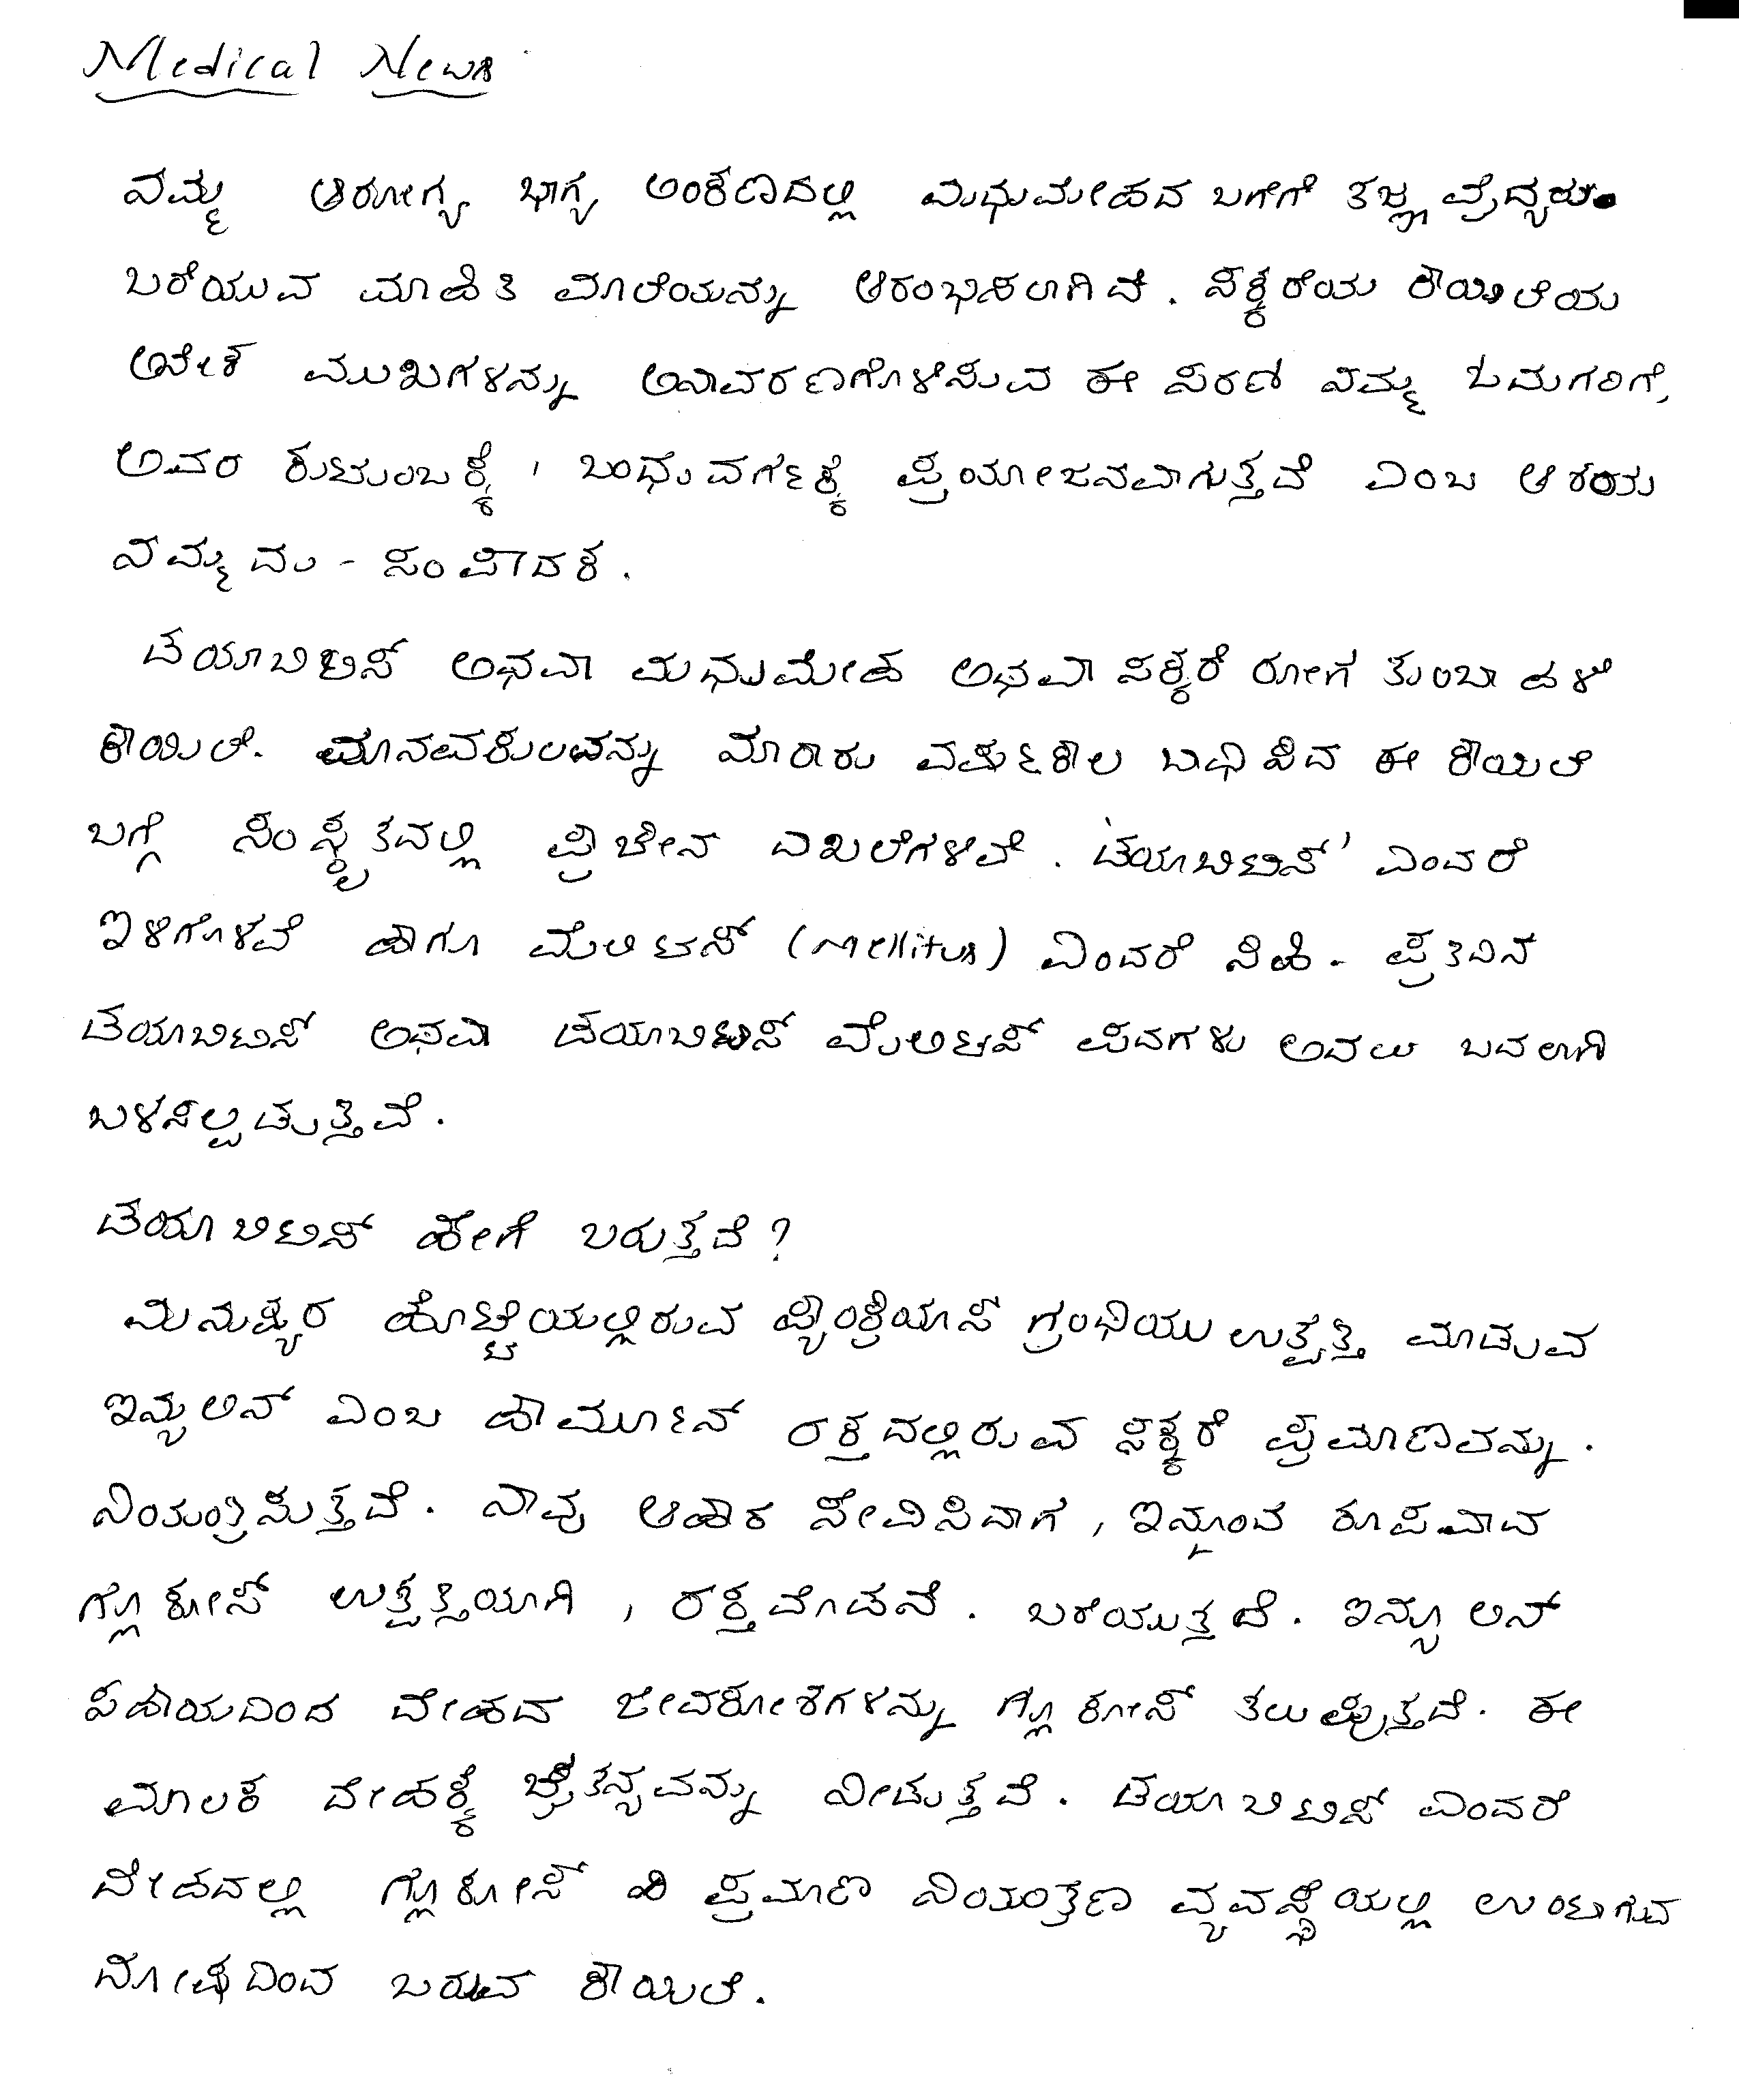 Medical News
ನಮ್ಮ ಆರೋಗ್ಯ ಭಾಗ್ಯ ಅಂಕಣದಲ್ಲಿ ಮಧುಮೇಹದ ಬಗೆಗೆ ತಜ್ಞ ವೈದ್ಯರು
ಬರೆಯುವ ಮಾಹಿತಿ ಮಾಲೆಯನ್ನು ಆರಂಭಿಸಲಾಗಿದೆ. ಸಕ್ಕರೆಯ ಕಾಯಿಲೆಯ
ಅನೇಕ ಮುಖಗಳನ್ನು ಅನಾವರಣಗೊಳಿಸುವ ಈ ಸರಣಿ ನಮ್ಮ ಓದುಗರಿಗೆ,
ಅವರ ಕುಟುಂಬಕ್ಕೆ, ಬಂಧುವರ್ಗಕ್ಕೆ ಪ್ರಯೋಜನವಾಗುತ್ತದೆ ಎಂಬ ಆಶಯ
ನಮ್ಮದು - ಸಂಪಾದಕ.
ಡಯಾಬಿಟಿಸ್ ಅಥವಾ ಮಧುಮೇಹ ಅಥವಾ ಸಕ್ಕರೆ ರೋಗ ತುಂಬಾ ಹಳೆ
ಕಾಯಿಲೆ. ಮಾನವಕುಲವನ್ನು ಮಾರಾರು ವರ್ಷಕಾಲ ಬಾಧಿಸಿದ ಈ ಕಾಯಿಲೆ
ಬಗ್ಗೆ ಸಂಸ್ಕೃತದಲ್ಲಿ ಪ್ರಾಚೀನ ದಾಖಲೆಗಳಿವೆ. 'ಡಯಾಬಿಟಿಸ್' ಎಂದರೆ
ಇಳಿಗೊಳವೆ ಹಾಗೂ ಮೆಲಿಟಸ್ (Mellitus) ಎಂದರೆ ಸಿಹಿ. ಪ್ರತಿದಿನ
ಡಯಾಬಿಟಿಸ್ ಅಥವಾ ಡಯಾಬಿಟಿಸ್ ಮೆಲಿಟಸ್ ಪದಗಳು ಅದಲು ಬದಲಾಗಿ
ಬಳಸಲ್ಪಡುತ್ತಿವೆ.
ಡಯಾಬಿಟಿಸ್ ಹೇಗೆ ಬರುತ್ತದೆ?
ಮನುಷ್ಯರ ಹೊಟ್ಟೆಯಲ್ಲಿರುವ ಪ್ಯಾಂಕ್ರಿಯಾಸ್ ಗ್ರಂಥಿಯು ಉತ್ಪತ್ತಿ ಮಾಡುವ
ಇನ್ಸುಲಿನ್ ಎಂಬ ಹಾರ್ಮೋನ್ ರಕ್ತದಲ್ಲಿರುವ ಸಕ್ಕರೆ ಪ್ರಮಾಣವನ್ನು.
ನಿಯಂತ್ರಿಸುತ್ತದೆ. ನಾವು ಆಹಾರ ಸೇವಿಸಿದಾಗ, ಇನ್ನೊಂದ ರೂಪವಾದ
ಗ್ಲೂಕೋಸ್ ಉತ್ಪತ್ತಿಯಾಗಿ, ರಕ್ತದೊಡನೆ. ಬರೆಯುತ್ತದೆ. ಇನ್ಸೂಲಿನ್
ಸಹಾಯದಿಂದ ದೇಹದ ಜೀವಕೋಶಗಳನ್ನು ಗ್ಲೂಕೋಸ್ ತಲುಪುತ್ತದೆ. ಈ
ಮೂಲಕ ದೇಹಕ್ಕೆ ಚೈತನ್ಯವನ್ನು ನೀಡುತ್ತವೆ. ಡಯಾಬಿಟಿಸ್ ಎಂದರೆ
ದೇಹದಲ್ಲಿ ಗ್ಲೂಕೋಸ್ ಪ್ರಮಾಣ ನಿಯಂತ್ರಣ ವ್ಯವಸ್ಥೆಯಲ್ಲಿ ಉಂಟಾಗುವ
ದೋಷದಿಂದ ಬರುವ ಕಾಯಿಲೆ.